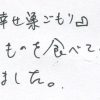 幸せ巣ごもり』
ものを食べて
ました。